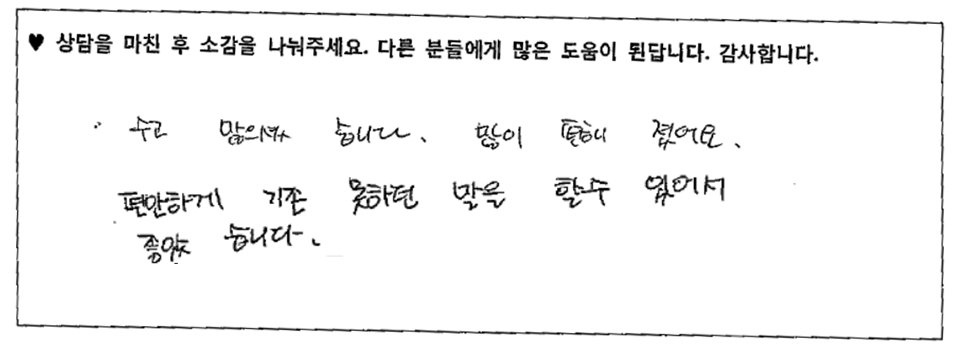 ♥ 상담을 마친 후 소감을 나눠주세요. 다른 분들에게 많은 도움이 된답니다. 감사합니다.
수고 많의셨 습니다. 많이 편해 졌어요.
편안하게 기존 못하던 말을 할수 있어서
좋았 습니다.